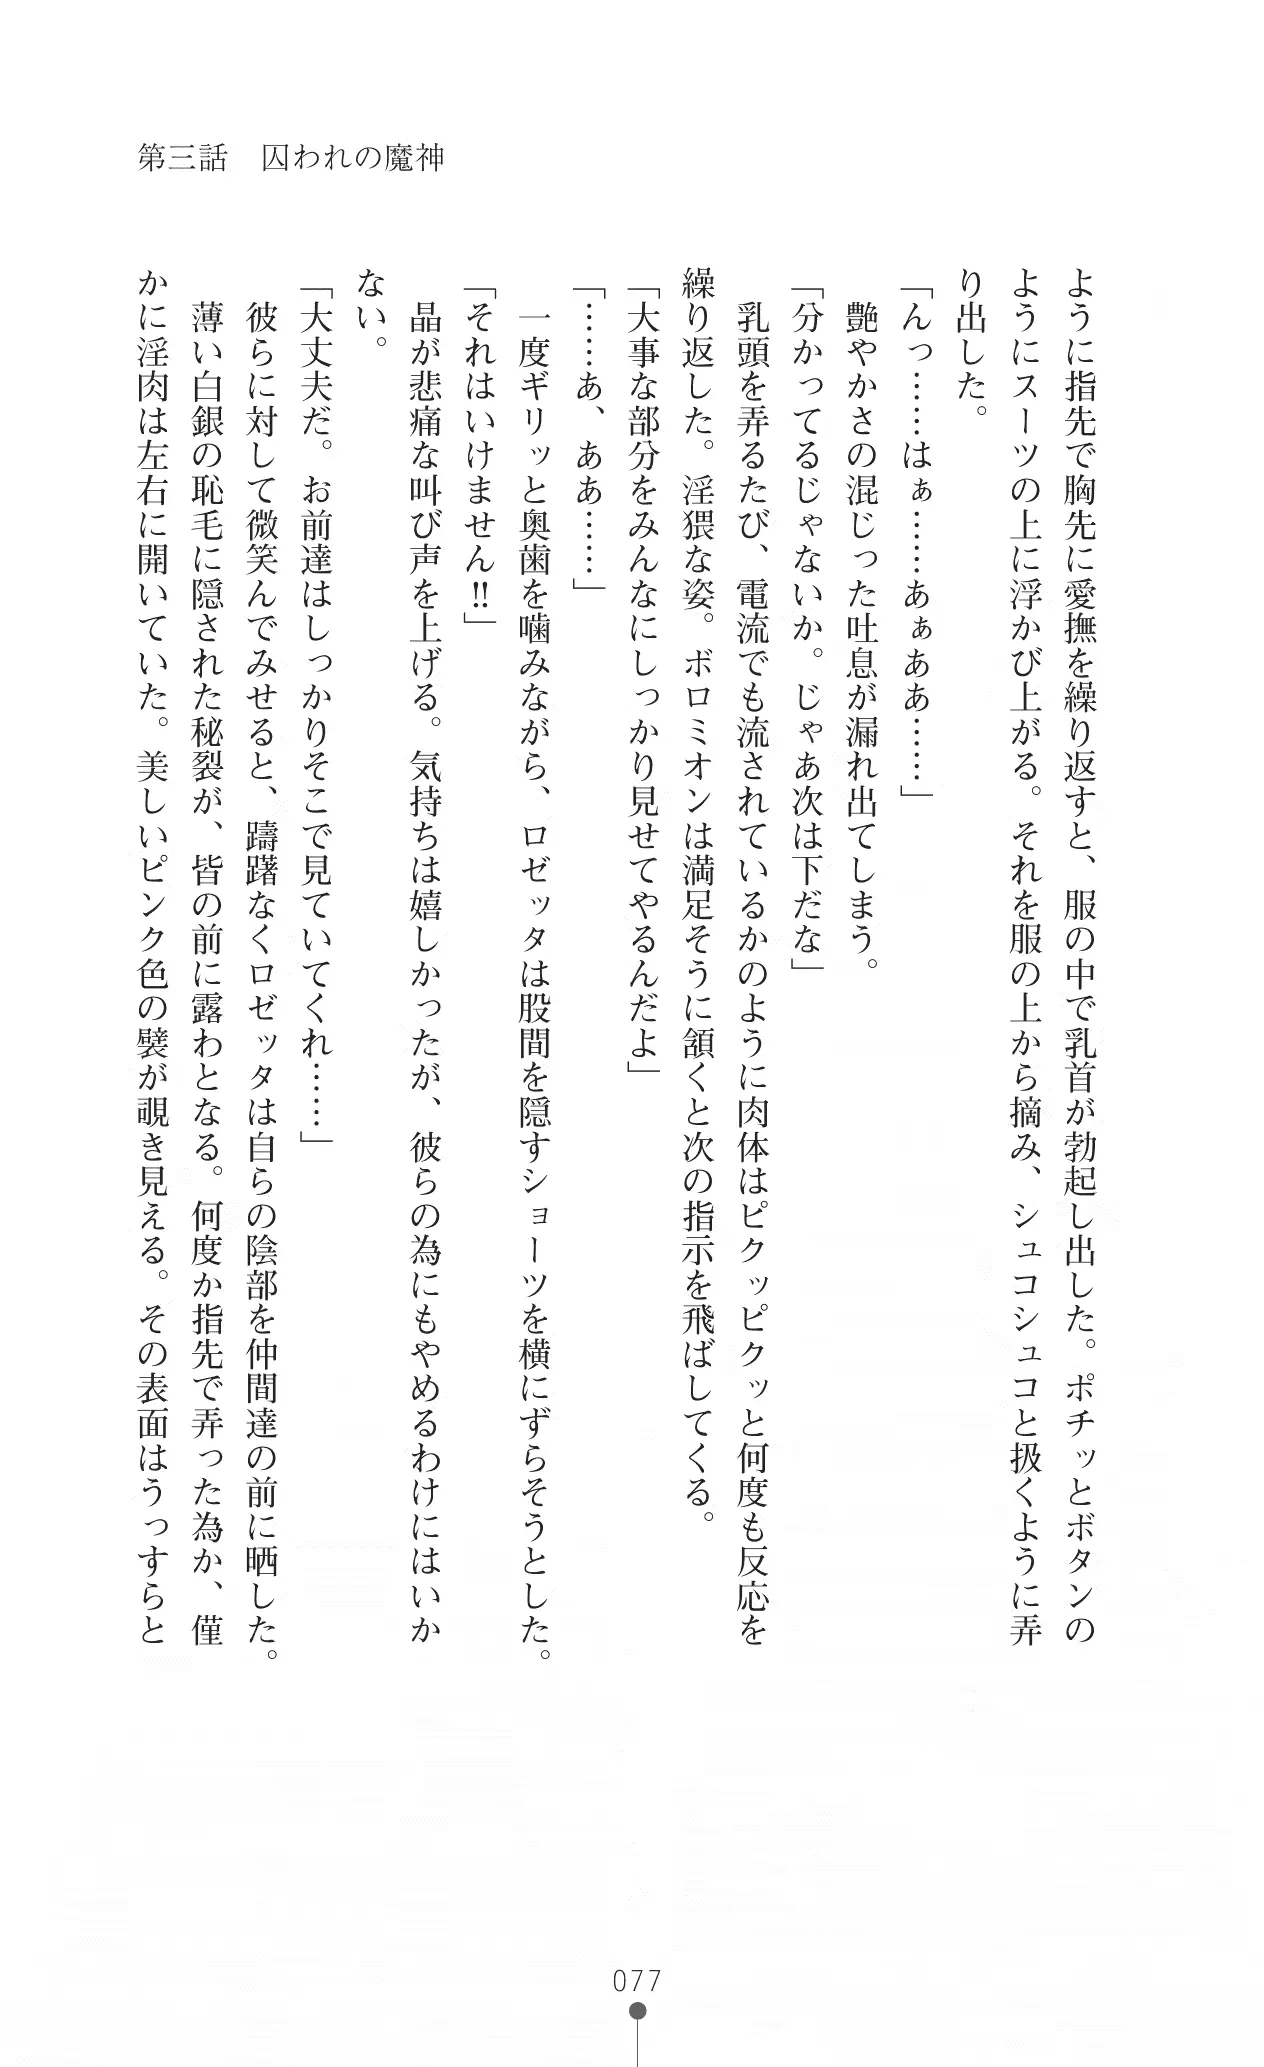 第三話　囚われの魔神
ように指先で胸先に愛撫を繰り返すと、服の中で乳首が勃起し出した。ポチッとボタンの
ようにスーツの上に浮かび上がる。それを服の上から摘み、シュコシュコと扱くように弄
り出した。
「んっ……はぁ……あぁああ……」
　艶やかさの混じった吐息が漏れ出てしまう。
「分かってるじゃないか。じゃあ次は下だな」
　乳頭を弄るたび、電流でも流されているかのように肉体はピクッピクッと何度も反応を
繰り返した。淫猥な姿。ボロミオンは満足そうに頷くと次の指示を飛ばしてくる。
「大事な部分をみんなにしっかり見せてやるんだよ」
「……あ、ああ……」
　一度ギリッと奥歯を噛みながら、ロゼッタは股間を隠すショーツを横にずらそうとした。
「それはいけません‼」
　晶が悲痛な叫び声を上げる。気持ちは嬉しかったが、彼らの為にもやめるわけにはいか
ない。
「大丈夫だ。お前達はしっかりそこで見ていてくれ……」
　彼らに対して微笑んでみせると、躊躇なくロゼッタは自らの陰部を仲間達の前に晒した。
　薄い白銀の恥毛に隠された秘裂が、皆の前に露わとなる。何度か指先で弄った為か、僅
かに淫肉は左右に開いていた。美しいピンク色の襞が覗き見える。その表面はうっすらと
077